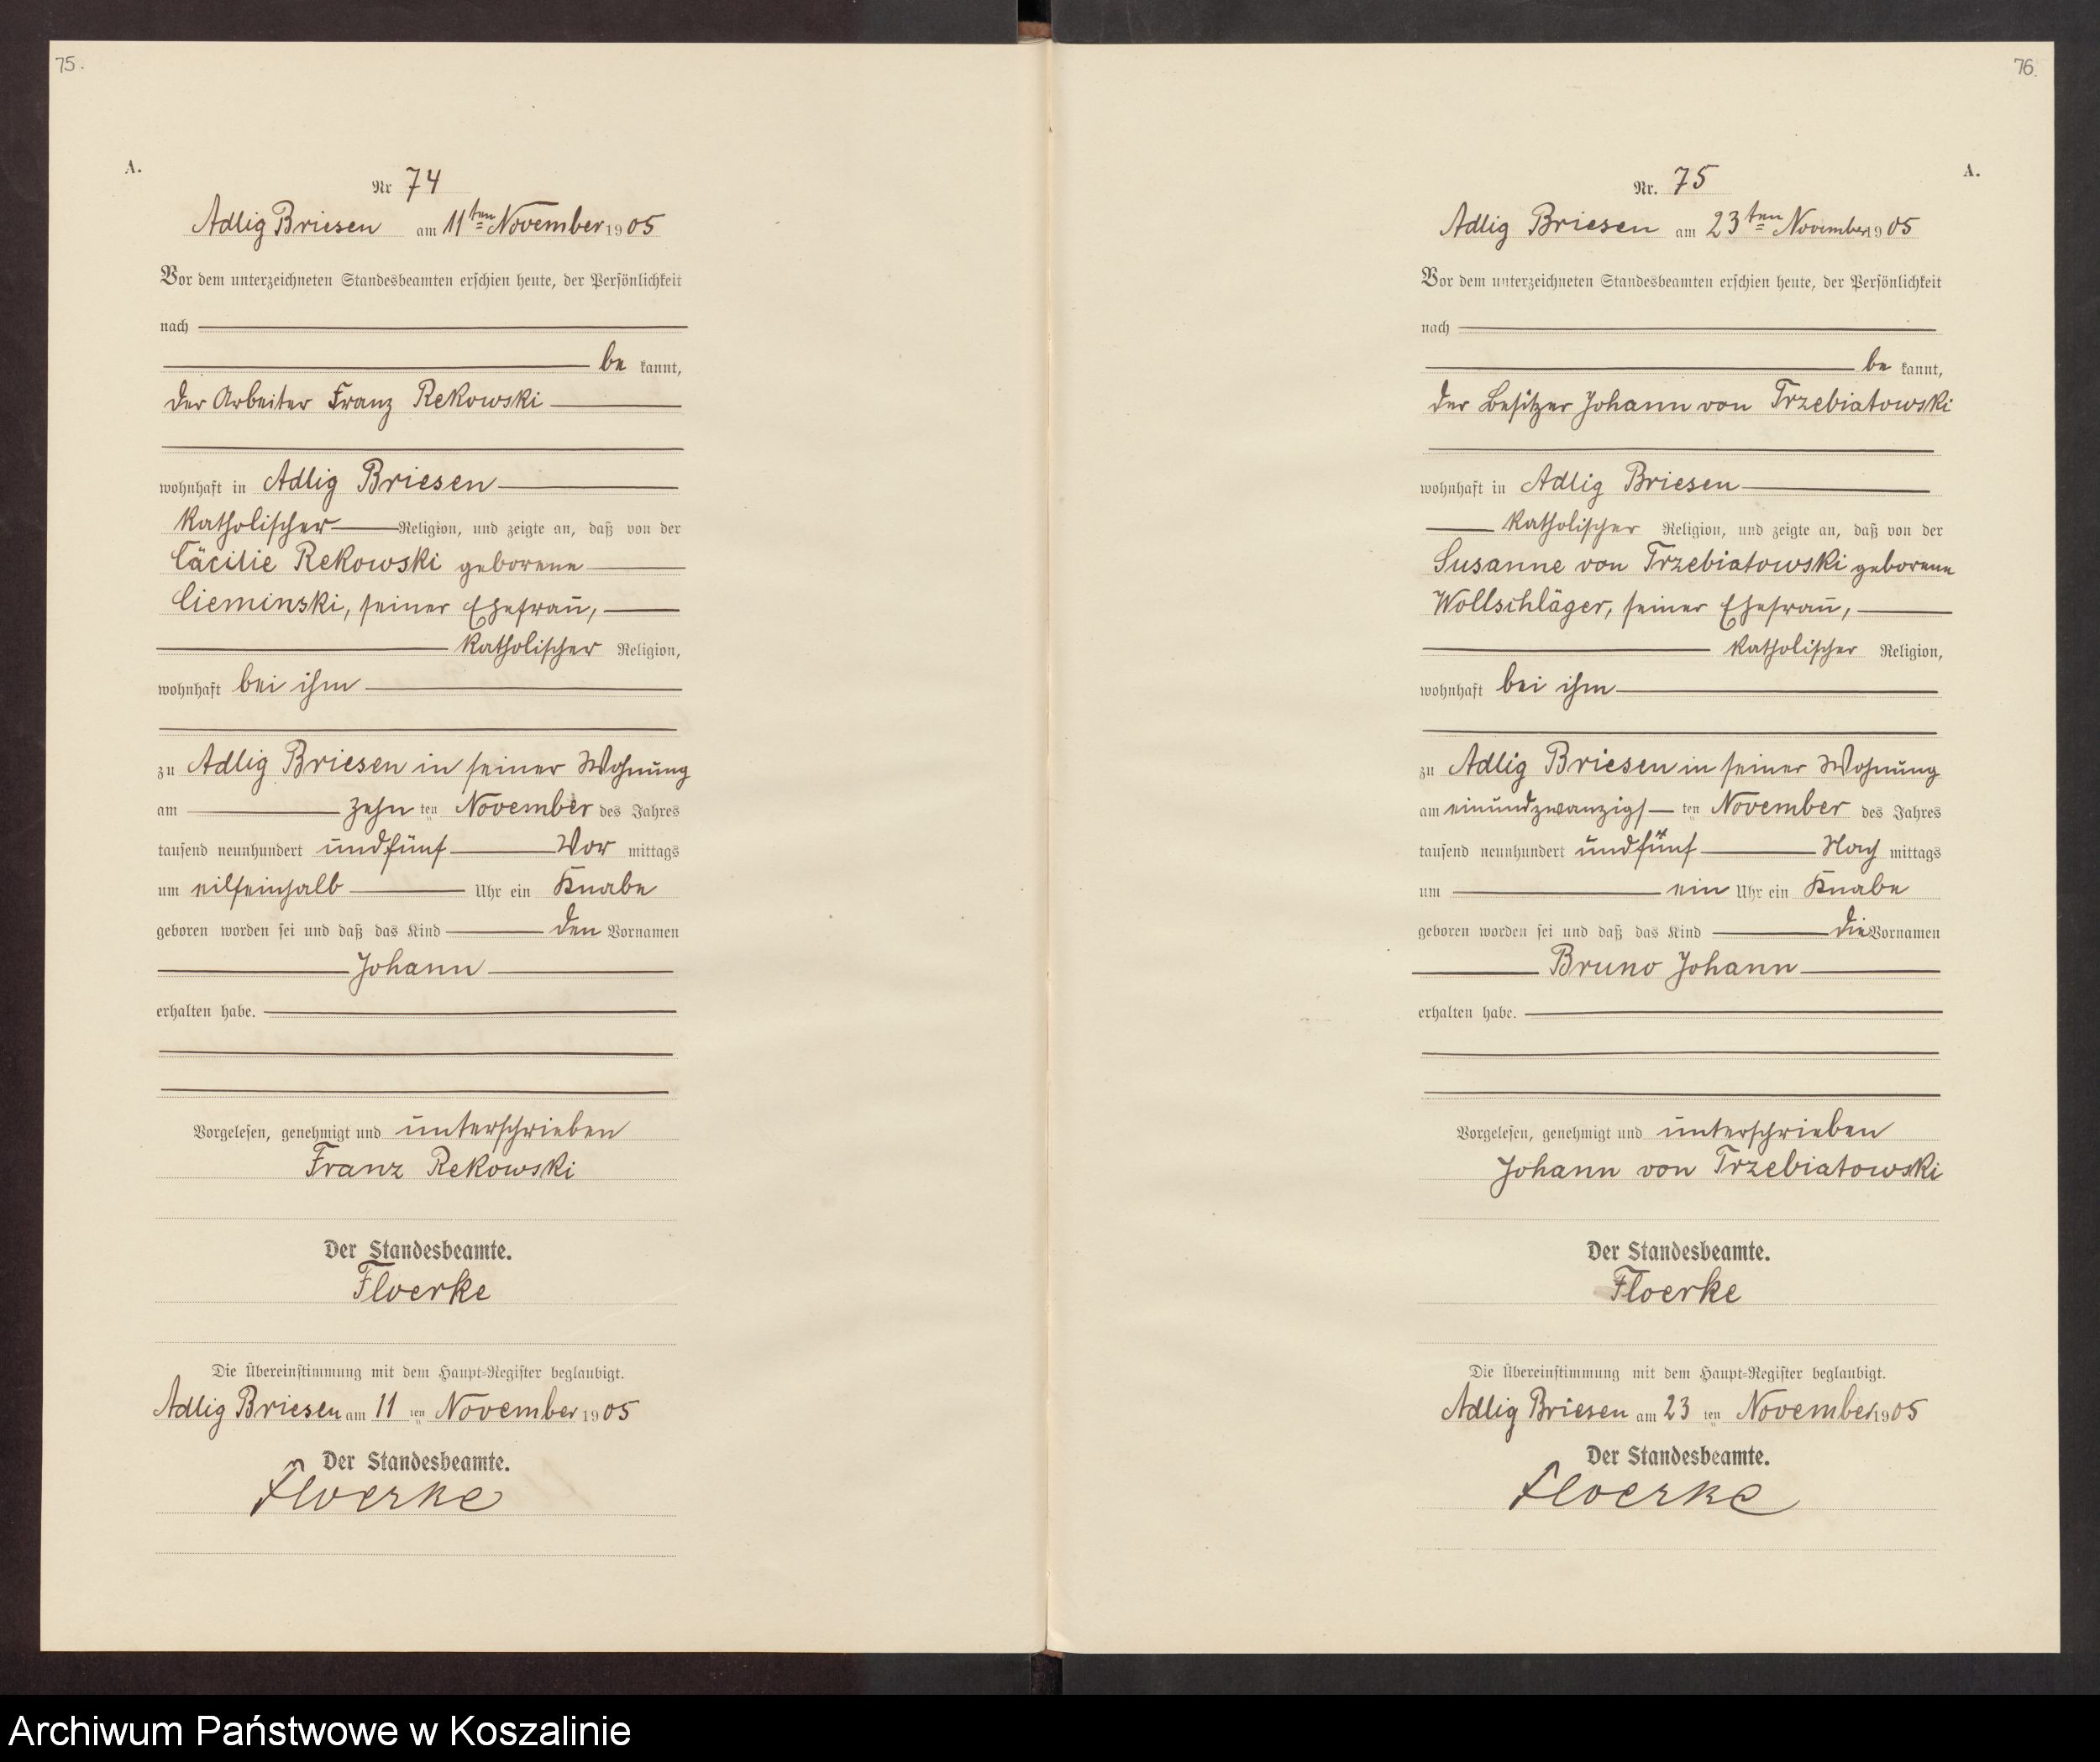 75.
A.
Nr 74
Adlig Briesen am 11ten November 1905
Vor dem unterzeichneten Standesbeamten erschien heute, der Persönlichkeit
nach
be kannt,
der Arbeiter Franz Rekowski
wohnhaft in Adlig Briesen
katholischer Religion, und zeigte an, daß von der
Cäcilie Rekowski geborene
Cieminski, seiner Ehefrau,
katholischer Religion,
wohnhaft bei ihm
zu Adlig Briesen in seiner Wohnung
am zehn ten November des Jahres
tausend neunhundert undfünf Vor mittags
um eilfeinhalb Uhr ein Knabe
geboren worden sei und daß das Kind den Vornamen
Johann
erhalten habe.
Vorgelesen, genehmigt und unterschrieben
Franz Rekowski
Der Standesbeamte.
Floerke
Die Übereinstimmung mit dem Haupt-Register beglaubigt.
Adlig Briesen am 11 ten November 1905
Der Standesbeamte.
Floerke
76.
A.
Nr. 75
Adlig Briesen am 23ten November 1905
Vor dem unterzeichneten Standesbeamten erschien heute, der Persönlichkeit
nach
be kannt,
der Besitzer Johann von Trzebiatowski
wohnhaft in Adlig Briesen
katholischer Religion, und zeigte an, daß von der
Susanne von Trzebiatowski geborene
Wollschläger, seiner Ehefrau,
katholischer Religion,
wohnhaft bei ihm
zu Adlig Briesen in seiner Wohnung
am einundzwanzigs ten November des Jahres
tausend neunhundert undfünf Nach mittags
um ein Uhr ein Knabe
geboren worden sei und daß das Kind die Vornamen
Bruno Johann
erhalten habe.
Vorgelesen, genehmigt und unterschrieben
Johann von Trzebiatowski
Der Standesbeamte.
Floerke
Die Übereinstimmung mit dem Haupt-Register beglaubigt.
Adlig Briesen am 23 ten November 1905
Der Standesbeamte.
Floerke
Archiwum Państwowe w Koszalinie